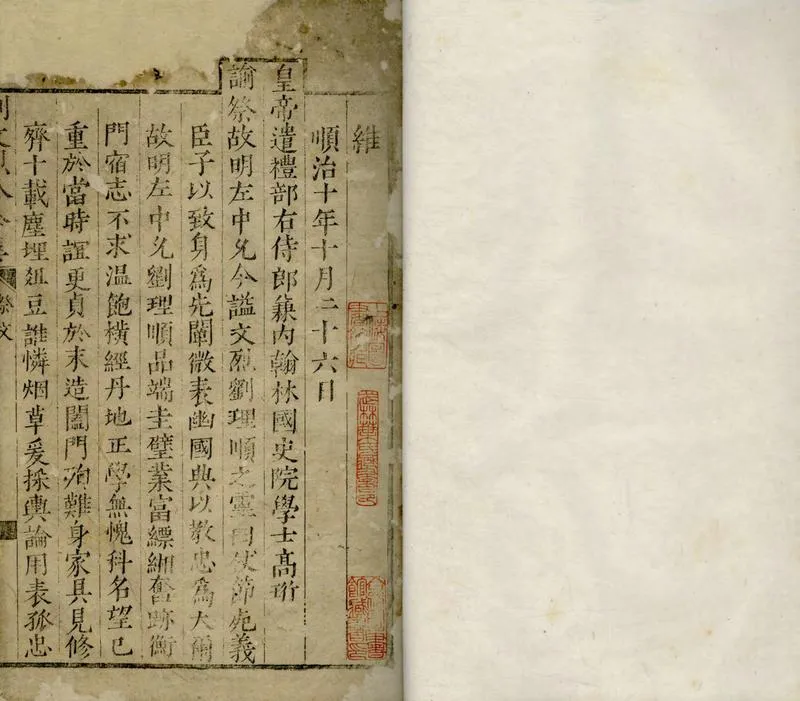 維
順治十年十月二十六日
皇帝遣禮部右侍郎兼內翰林國史院學士高珩
諭祭故明左中允今謚文烈劉理順之靈曰仗節死義
臣子以致身爲先闡微表幽國典以敎忠爲大爾
故明左中允劉理順品端圭璧業富縹緗奮跡衡
門宿志不求温飽橫經丹地正學無愧科名望已
重於當時誼更貞於末造闔門殉難身家具見修
齊十載塵埋俎豆誰憐烟草爰採輿論用表孤忠
祭文